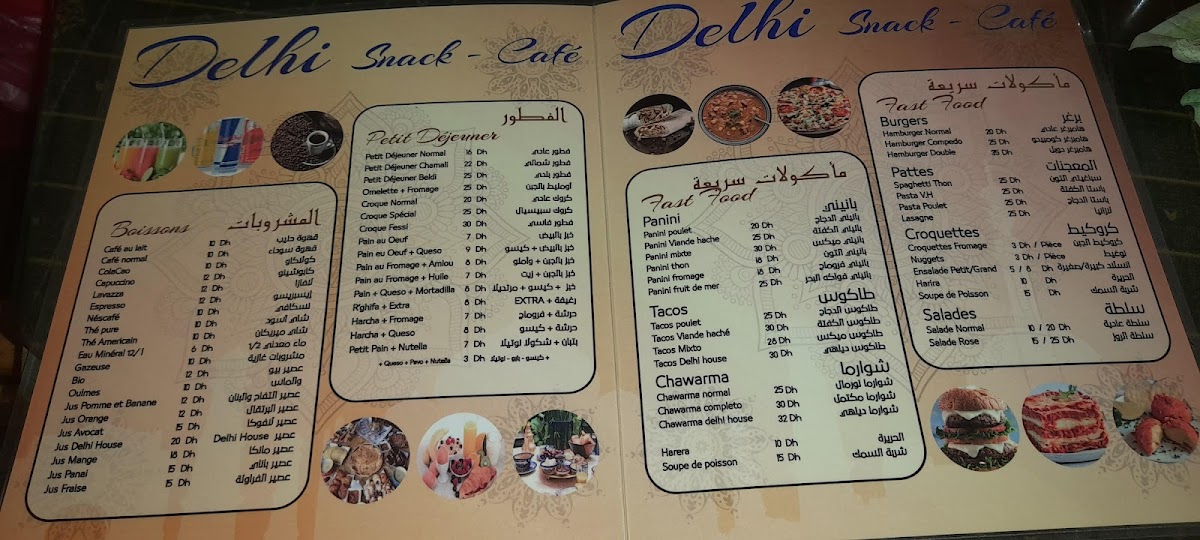 Delhi Snack - Café
الفطور
Petit Déjeuner
Petit Déjeuner Normal 16 Dh فطور عادي
Petit Déjeuner Chamali 22 Dh فطور شمالي
Petit Déjeuner Beldi 25 Dh فطور بلدي
Omelette + Fromage 25 Dh أومليط بالجبن
Croque Normal 20 Dh كروك عادي
Croque Spécial 25 Dh كروك سبيسيال
Croque Fessi 30 Dh فطور فاسي
Pain au Oeuf 7 Dh خبز بالبيض
Pain eu Oeuf + Queso 9 Dh خبز بالبيض + كيسو
Pain au Fromage + Amlou 8 Dh خبز بالجبن + واملو
Pain au Fromage + Huile 7 Dh خبز بالجبن + زيت
Pain + Queso + Mortadilla 8 Dh خبز + كيسو + مرتديلا
R'ghifa + Extra 8 Dh رغيفة + EXTRA
Harcha + Fromage 7 Dh حرشة + فروماج
Harcha + Queso 8 Dh حرشة + كيسو
Petit Pain + Nutella 7 Dh بتبان + شكولا نوتيلا
+ Queso + Pavo + Nutella 3 Dh + كيسو - بابو - نوتيلا
Boissons المشروبات
Café au lait 10 Dh قهوة حليب
Café normal 10 Dh قهوة سوداء
ColaCao 12 Dh كولاكاو
Capuccino 12 Dh كابوتشينو
Lavazza 12 Dh لافازا
Espresso إيسبريسو
Néscafé نسكافي
Thé pure شاي أسود
Thé Americain شاي أمريكان
Eau Minéral 12/l 6 Dh ماء معدني 1/2
Gazeuse 10 Dh مشروبات غازية
Bio عصير بيو
Oulmes والماس
Jus Pomme et Banane 12 Dh عصير التفاح والبنان
Jus Orange 12 Dh عصير البرتقال
Jus Avocat 15 Dh عصير لافوكا
Jus Delhi House 20 Dh عصير Delhi House
Jus Mange 18 Dh عصير مانكا
Jus Panai 15 Dh عصير بناي
Jus Fraise 15 Dh عصير الفراولة
Delhi Snack - Café
مأكولات سريعة
Fast Food
Panini بانيني
Panini poulet 20 Dh بانيني الدجاج
Panini Viande hache 25 Dh بانيني الكفتة
Panini mixte 30 Dh بانيني ميكس
Panini thon 18 Dh بانيني التون
Panini fromage 18 Dh بانيني فروماج
Panini fruit de mer 25 Dh بانيني فواكه البحر
Tacos طاكوس
Tacos poulet 25 Dh طاكوس الدجاج
Tacos Viande haché 30 Dh طاكوس الكفتة
Tacos Mixto 28 Dh طاكوس ميكس
Tacos Delhi house 30 Dh طاكوس ديلهي
Chawarma شوارما
Chawarma normal 25 Dh شوارما نورمال
Chawarma completo 30 Dh شوارما مكتمل
Chawarma delhi house 32 Dh شوارما ديلهي
Harera 10 Dh الحريرة
Soupe de poisson 15 Dh شربة السمك
مأكولات سريعة
Fast Food
Burgers برغر
Hamburger Normal 20 Dh هامبرغر عادي
Hamburger Compedo 25 Dh هامبرغر كومبيدو
Hamburger Double 35 Dh هامبرغر دوبل
Pattes المعجنات
Spaghetti Thon 25 Dh سباغيتي التون
Pasta V.H 25 Dh باستا الكفتة
Pasta Poulet 25 Dh باستا الدجاج
Lasagne 25 Dh لازانيا
Croquettes كروكيط
Croquettes Fromage 3 Dh / Pièce كروكيط الجبن
Nuggets 3 Dh / Pièce نوغيط
Ensalade Petit/Grand 5 / 8 Dh انسلاد كبيرة/صغيرة
Harira 10 Dh الحريرة
Soupe de Poisson 15 Dh شربة السمك
Salades سلطة
Salade Normal 10 / 20 Dh سلطة عادية
Salade Rose 15 / 25 Dh سلطة الروز